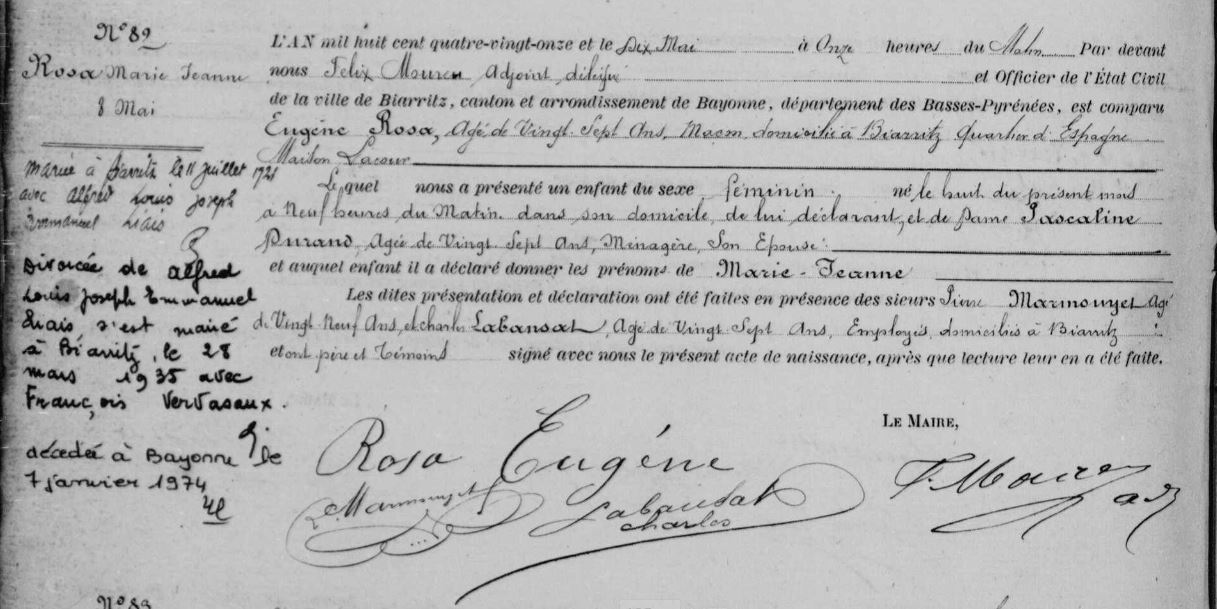 N° 82
Rosa Marie Jeanne
8 Mai
mariée à Biarritz le 11 juillet 1921
avec Alfred Louis Joseph
Emmanuel Liais
Divorcée de Alfred
Louis Joseph Emmanuel
Liais, s'est mariée
à Biarritz, le 28
mars 1935 avec
François Vervasaux.
décédée à Bayonne le
7 janvier 1974
L'AN mil huit cent quatre-vingt-onze et le Dix Mai à Onze heures du Matin Par devant
nous Felix Moureu Adjoint délégué et Officier de l'État Civil
de la ville de Biarritz, canton et arrondissement de Bayonne, département des Basses-Pyrénées, est comparu
Eugène Rosa, Agé de Vingt Sept Ans, Maçon domicilié à Biarritz Quartier d'Espagne
Maison Lacour
Lequel nous a présenté un enfant du sexe féminin né le huit du présent mois
a Neuf heures du Matin dans son domicile, de lui déclarant, et de Dame Pascaline
Durand, Agée de Vingt Sept Ans, Ménagère, Son Epouse
et auquel enfant il a déclaré donner les prénoms de Marie-Jeanne
Les dites présentation et déclaration ont été faites en présence des sieurs Pierre Marmouyet Agé
de Vingt Neuf Ans, et Charles Labansat, Agé de Vingt Sept Ans, Employés, domiciliés à Biarritz
et ont père et témoins signé avec nous le présent acte de naissance, après que lecture leur en a été faite.
LE MAIRE,
Rosa Eugéne
Marmouyet
Labansat
Charles
F. Moureu
adj
N° 83